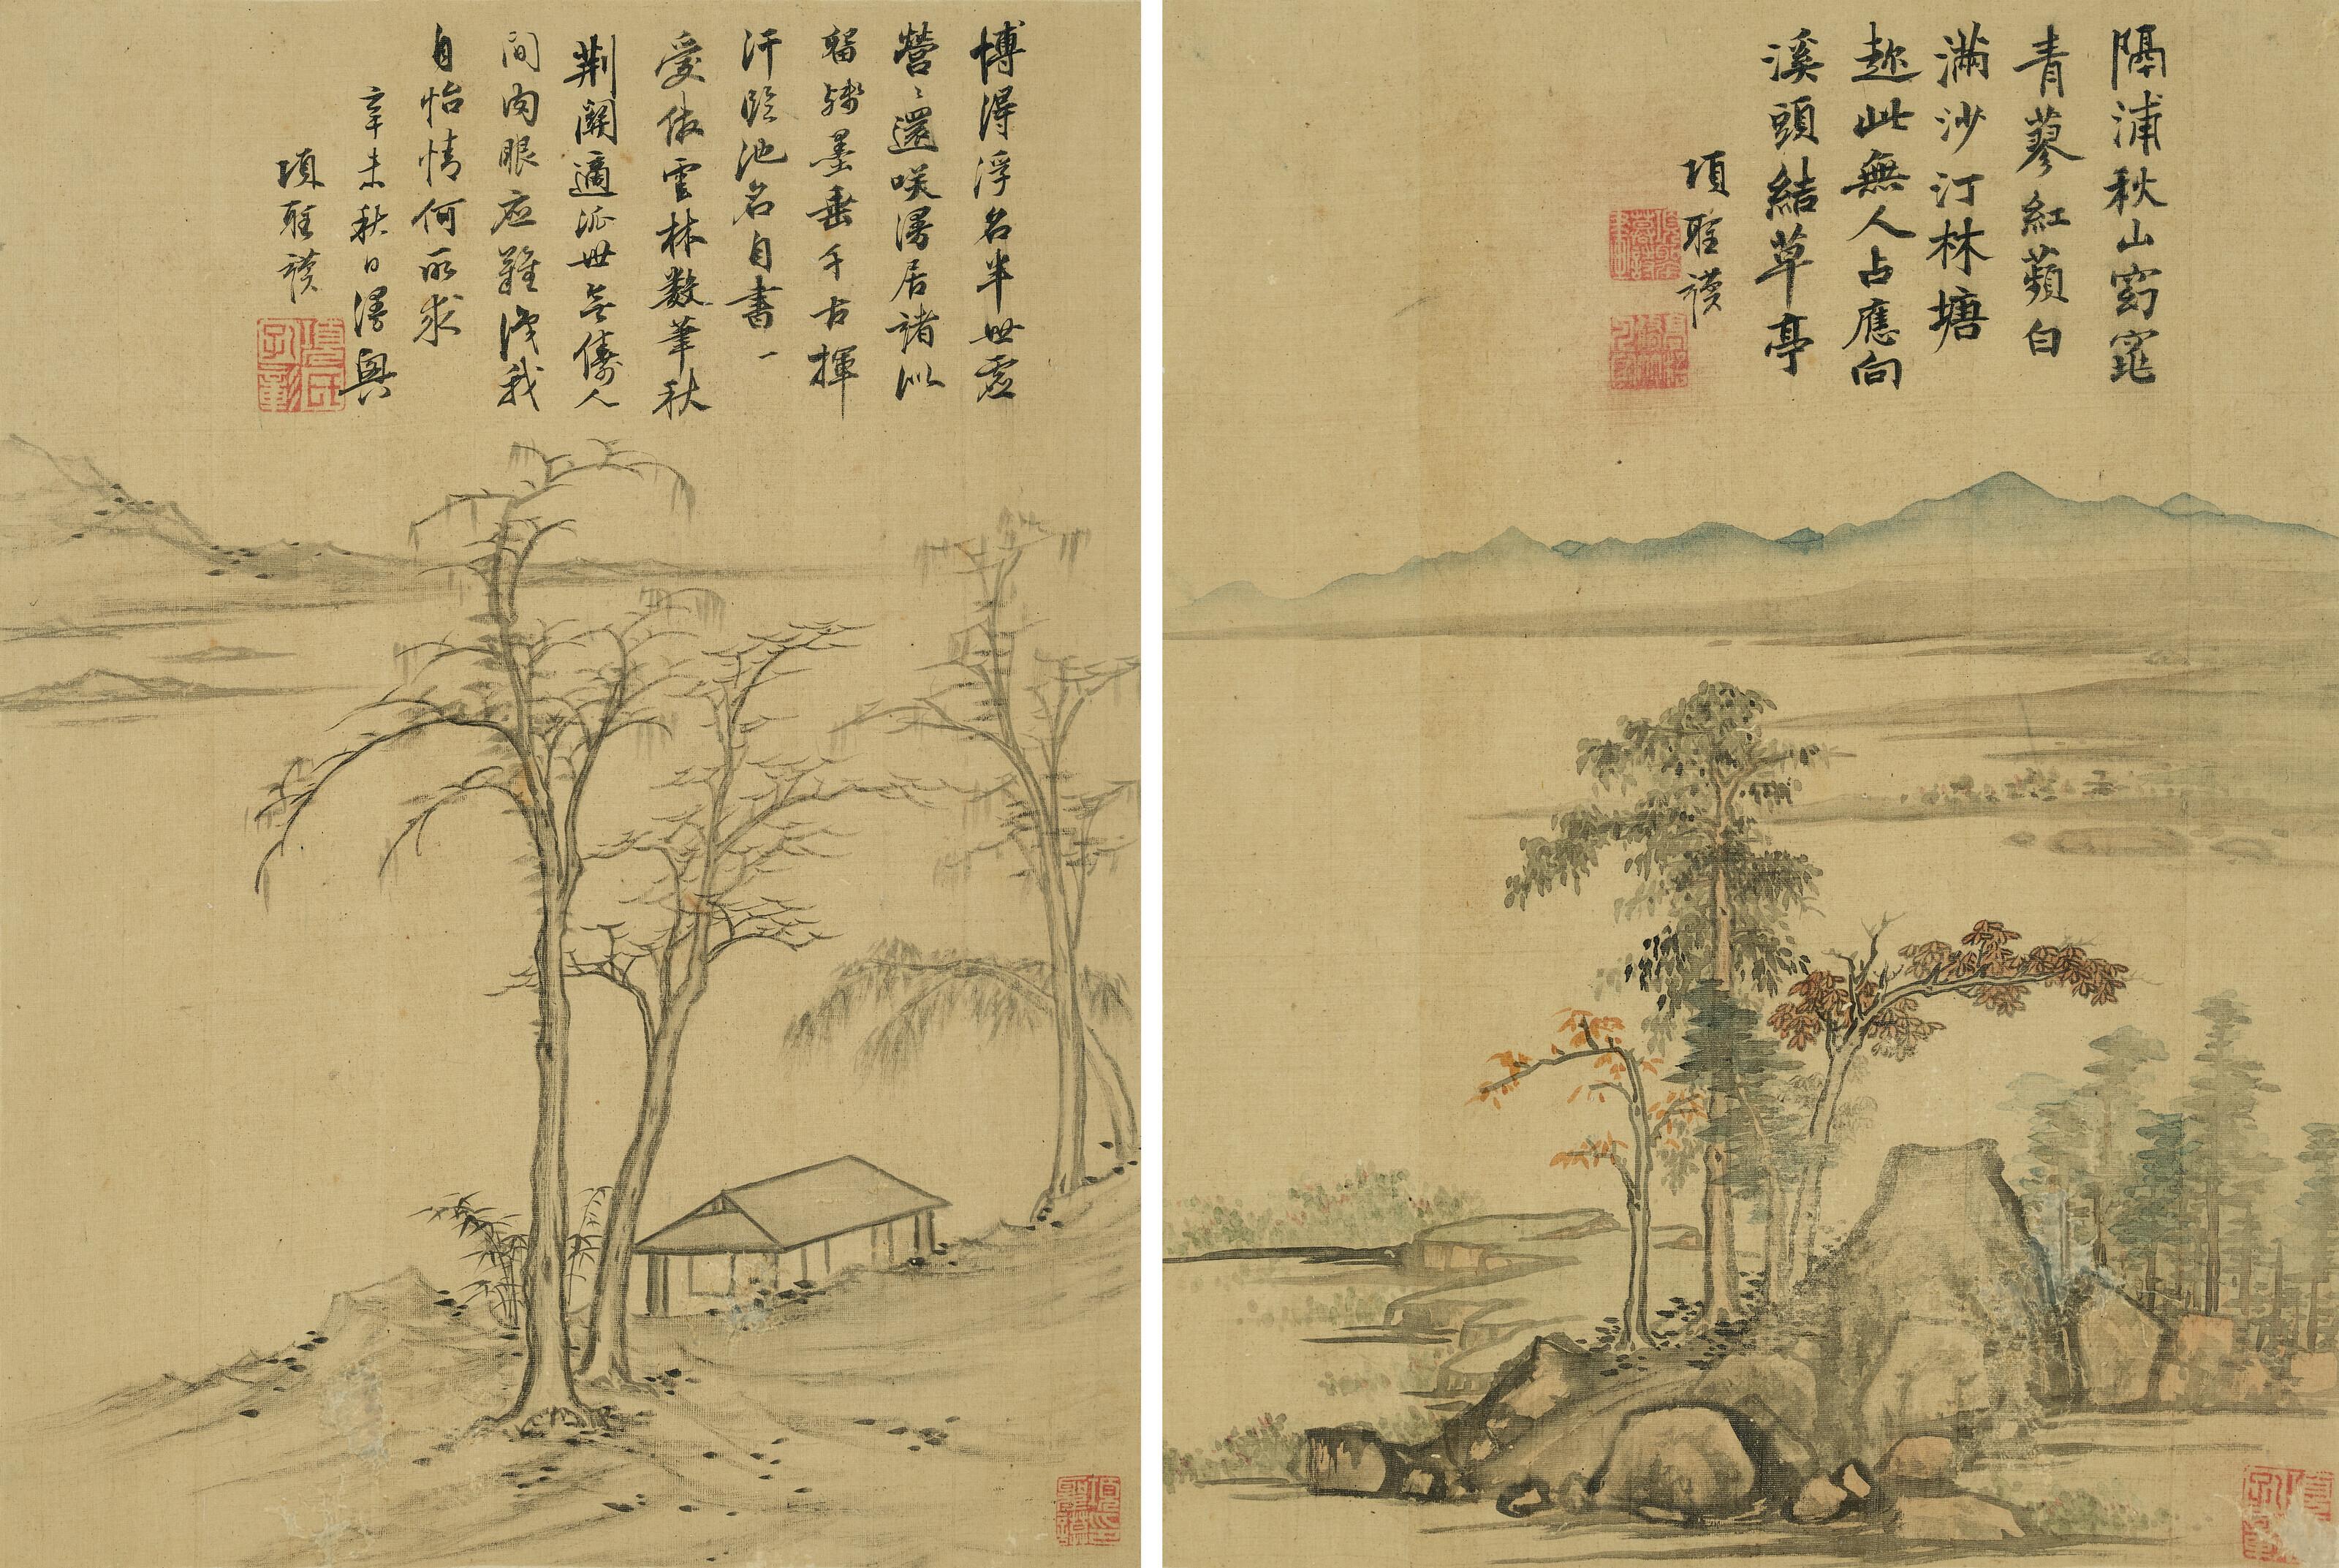 隔浦秋山窈窕
青蓼紅蘋白
滿沙汀林塘
趂此無人占應向
溪頭結草亭
項聖謨
博得浮名半世虛
營〻還咲漫居諸似
留殘墨垂千古揮
汗臨池名自書一
愛倣雲林數筆秋
荊關適派世無儔人
間肉眼应難識我
自怡情何所求
辛未秋日漫興
項聖謨
項氏孔彰